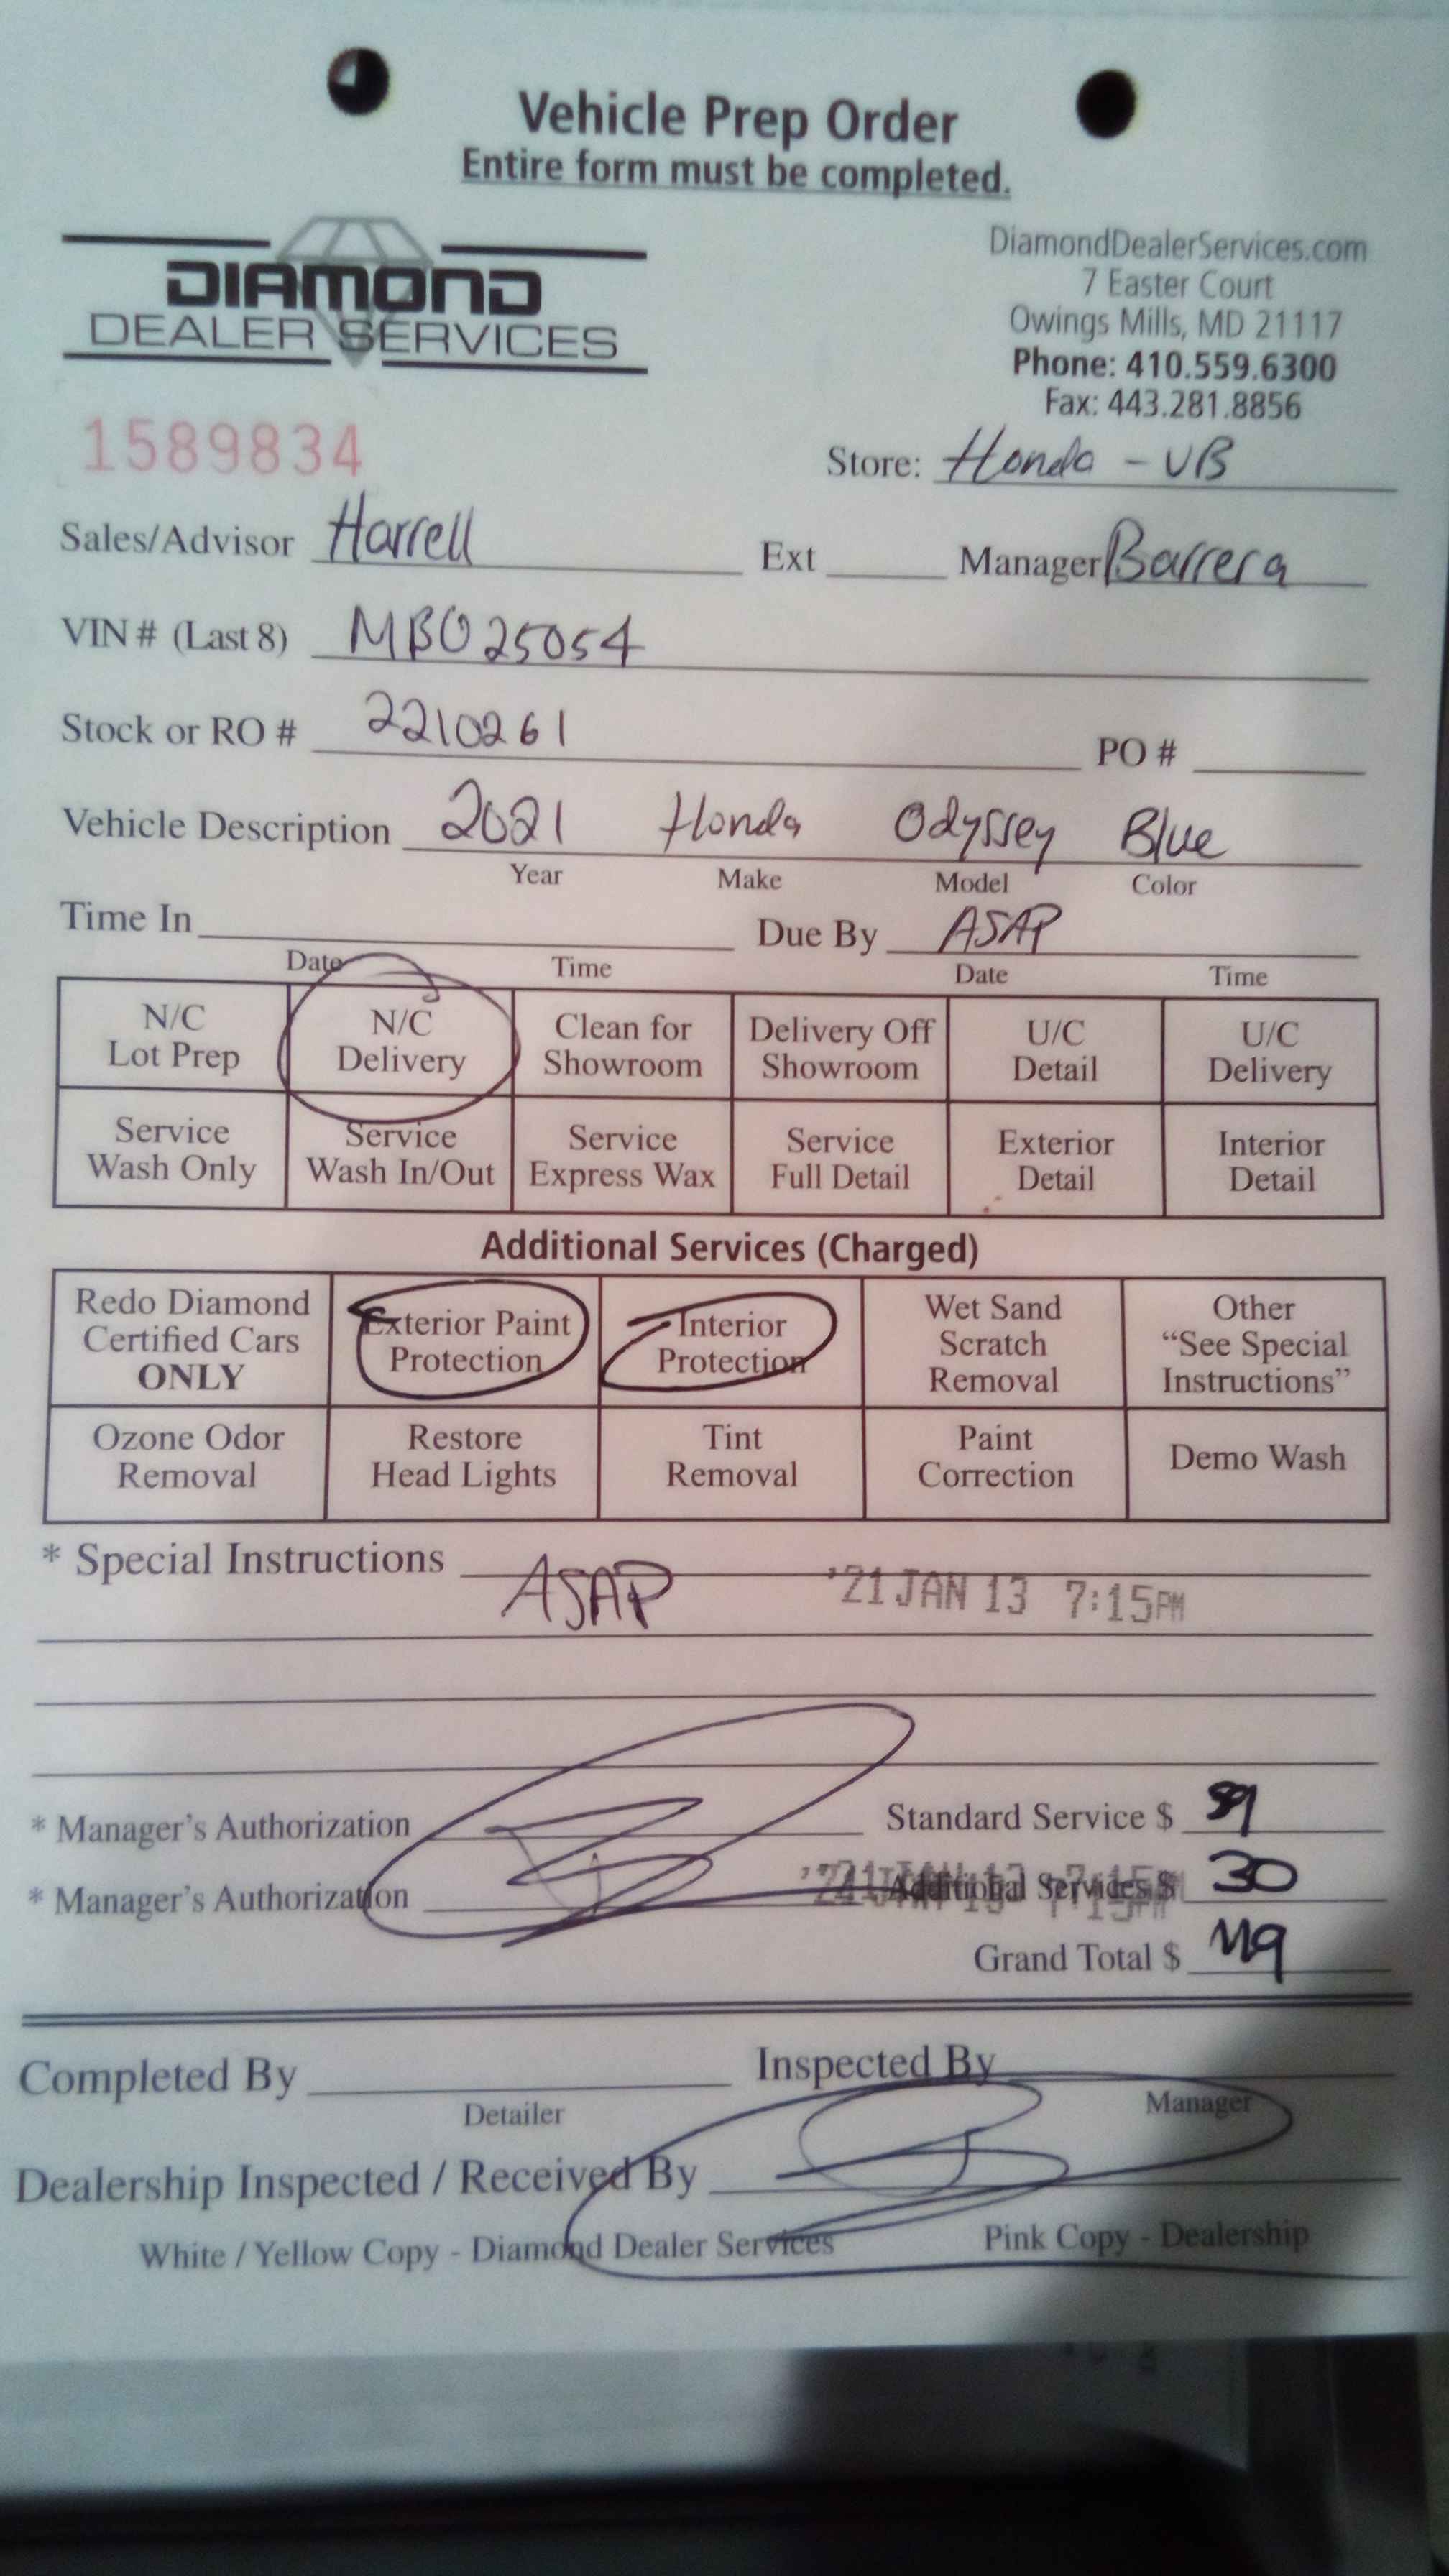 Vehicle Prep Order
Entire form must be completed.
DIAMOND
DEALER SERVICES
DiamondDealerServices.com
7 Easter Court
Owings Mills, MD 21117
Phone: 410.559.6300
Fax: 443.281.8856
1589834
Store: Honda - VB
Sales/Advisor Harrell Ext Manager Barrera
VIN # (Last 8) MB025054
Stock or RO # 2210261 PO #
Vehicle Description 2021 Honda Odyssey Blue
Year Make Model Color
Time In Due By ASAP
Date Time Date Time
N/C Lot Prep
N/C Delivery
Clean for Showroom
Delivery Off Showroom
U/C Detail
U/C Delivery
Service Wash Only
Service Wash In/Out
Service Express Wax
Service Full Detail
Exterior Detail
Interior Detail
Additional Services (Charged)
Redo Diamond Certified Cars ONLY
Exterior Paint Protection
Interior Protection
Wet Sand Scratch Removal
Other "See Special Instructions"
Ozone Odor Removal
Restore Head Lights
Tint Removal
Paint Correction
Demo Wash
* Special Instructions ASAP '21 JAN 13 7:15PM
* Manager's Authorization Standard Service $ 89
* Manager's Authorization Additional Services $ 30
Grand Total $ 119
Completed By Inspected By
Detailer Manager
Dealership Inspected / Received By
White / Yellow Copy - Diamond Dealer Services Pink Copy - Dealership